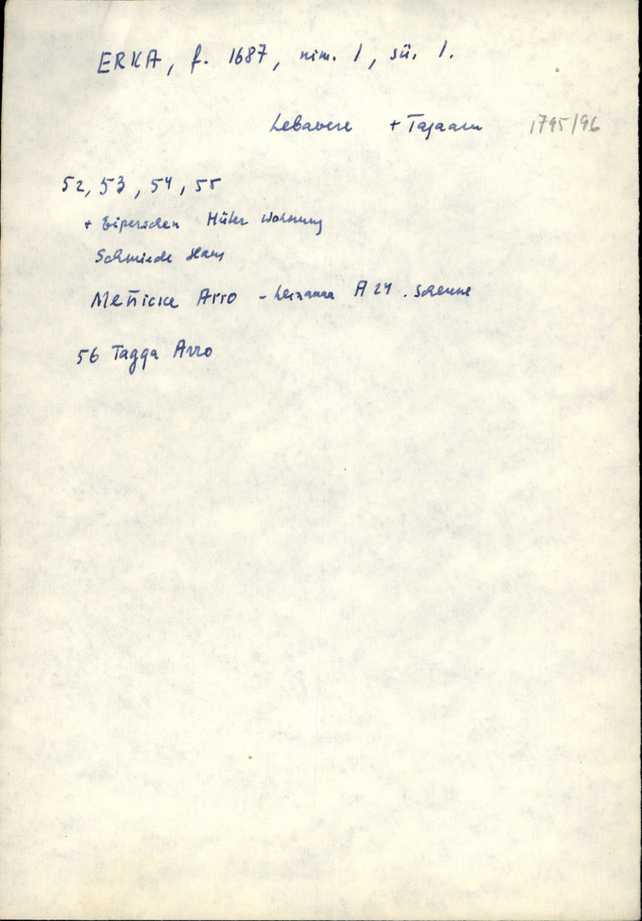 ERKA, f. 1687, nim. 1, sü. 1.
Lebavere + Tajaaru 1795/96
52, 53, 54, 55
+ Hüter Wohnung
Schmiede Haus
Meñicke Arro - A 24. Scheune
56 Tagga Arro